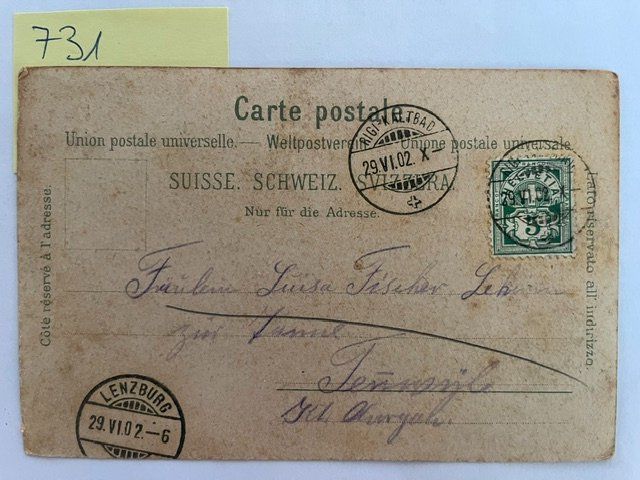 731
Carte postale.
Union postale universelle. — Weltpostverein. — Unione postale universale
SUISSE. SCHWEIZ. SVIZZERA.
Nur für die Adresse.
Côte réservé à l'adresse.
Lato riservato all' indirizzo.
RIGI-KALTBAD
29.VI.02. X
HELVETIA
5
29.VI.02. X
Fräulein Luisa Fischer
zur Tanne
Tennwyle
Kt. Aargau.
LENZBURG
29.VI.02.–6